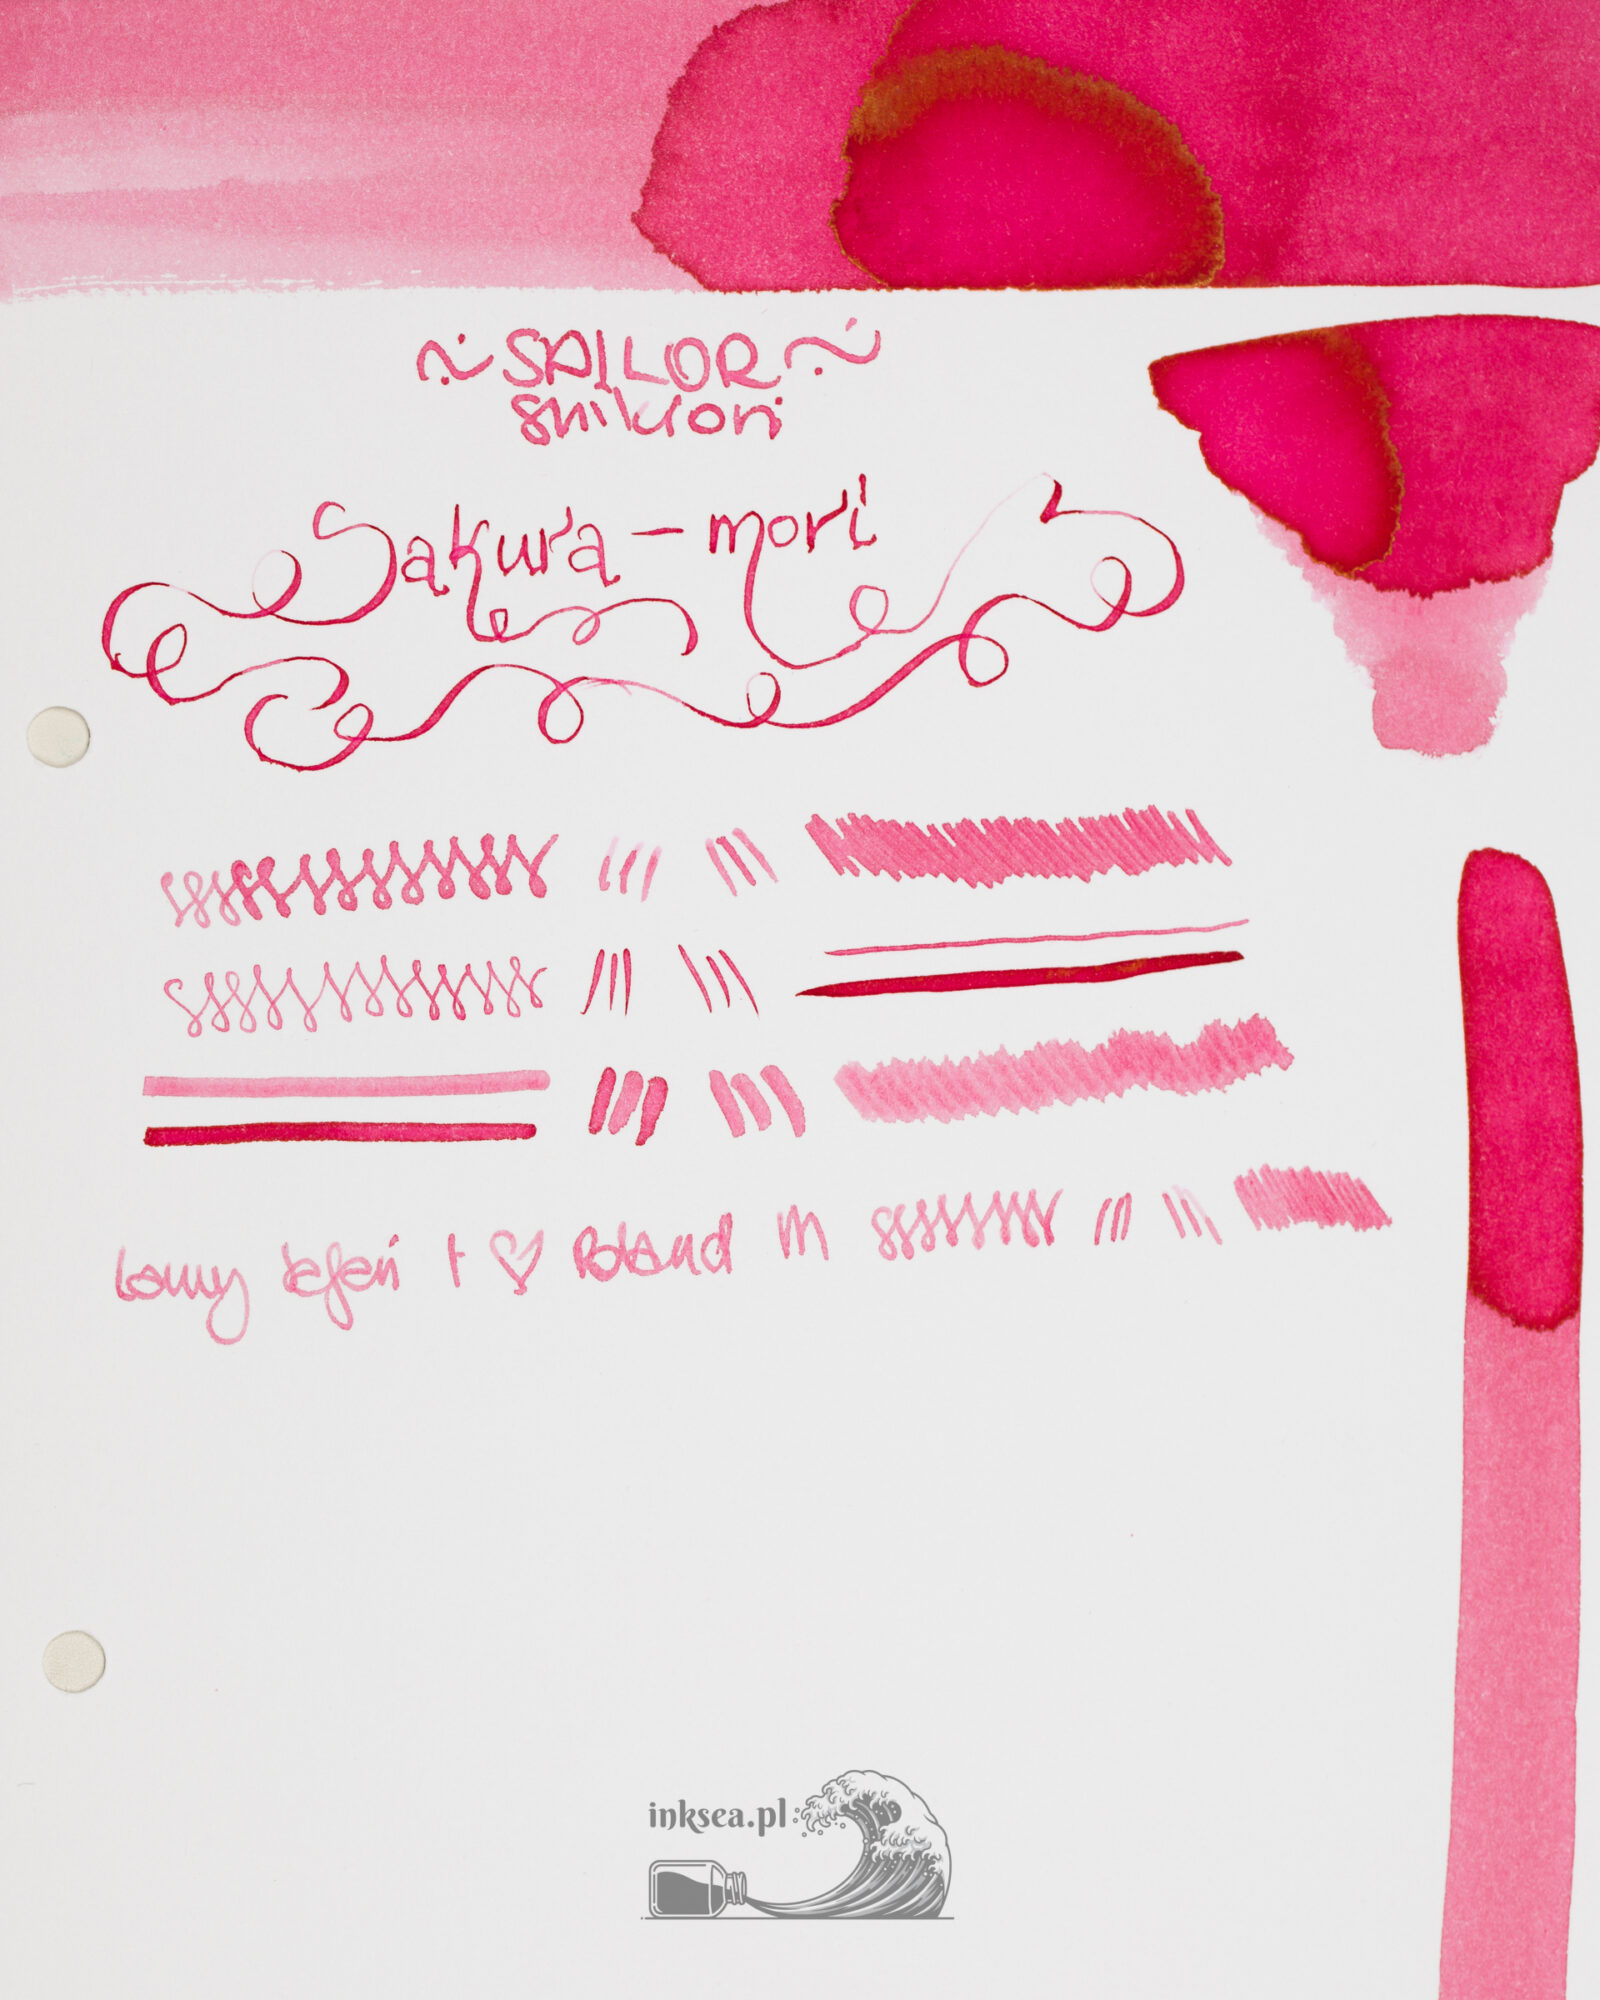 ~ SAILOR ~
Shikiori
Sakura - mori
Lamy Safari I ♡ Poland M
inksea.pl